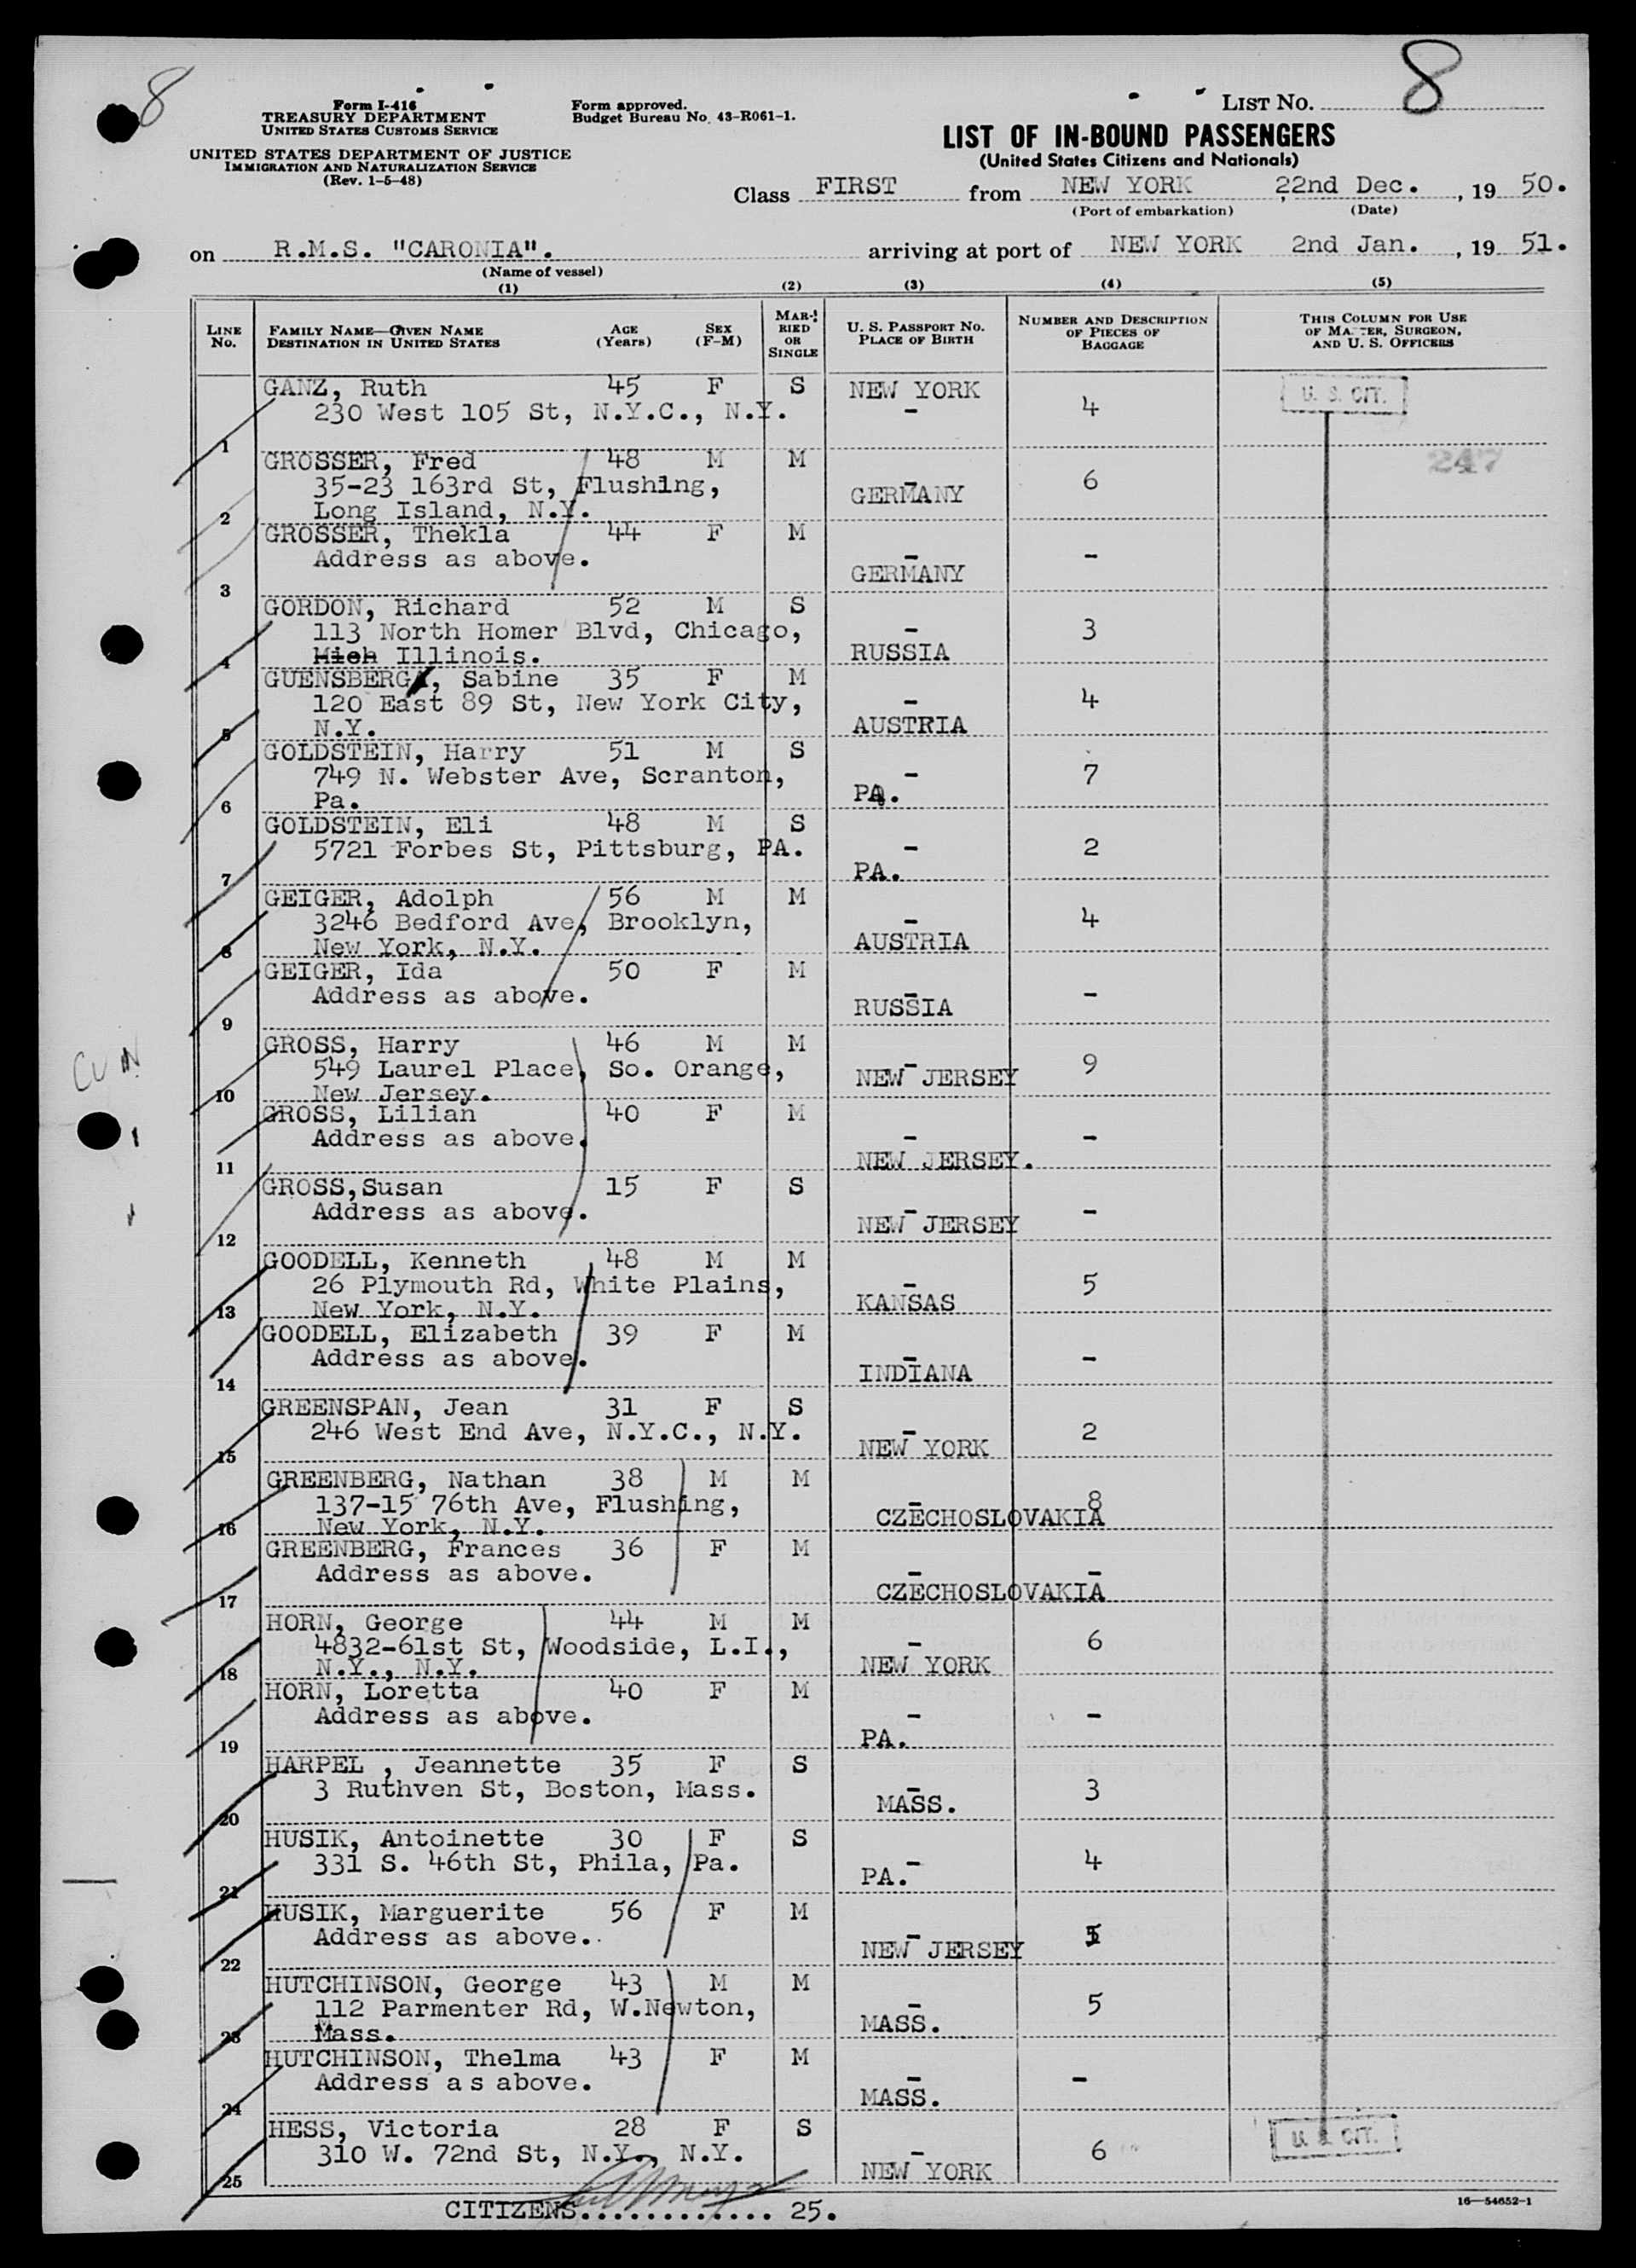 8
8
Form I-416
TREASURY DEPARTMENT
UNITED STATES CUSTOMS SERVICE
UNITED STATES DEPARTMENT OF JUSTICE
IMMIGRATION AND NATURALIZATION SERVICE
(Rev. 1-5-48)
Form approved.
Budget Bureau No. 43-R061-1.
LIST NO.
LIST OF IN-BOUND PASSENGERS
(United States Citizens and Nationals)
Class FIRST from NEW YORK, 22nd Dec., 19 50.
(Port of embarkation) (Date)
on R.M.S. "CARONIA". arriving at port of NEW YORK 2nd Jan., 19 51.
(Name of vessel)
(1) (2) (3) (4) (5)
LINE NO. FAMILY NAME—GIVEN NAME DESTINATION IN UNITED STATES AGE (Years) SEX (F-M) MARRIED OR SINGLE U. S. PASSPORT NO. PLACE OF BIRTH NUMBER AND DESCRIPTION OF PIECES OF BAGGAGE THIS COLUMN FOR USE OF MASTER, SURGEON, AND U. S. OFFICERS
GANZ, Ruth 45 F S NEW YORK U. S. CIT.
230 West 105 St, N.Y.C., N.Y. - 4
1
GROSSER, Fred 48 M M 247
35-23 163rd St, Flushing, - GERMANY 6
2 Long Island, N.Y.
GROSSER, Thekla 44 F M
Address as above. - -
3 GERMANY
GORDON, Richard 52 M S
113 North Homer Blvd, Chicago, - 3
4 Mich Illinois. RUSSIA
GUENSBERG, Sabine 35 F M
120 East 89 St, New York City, - 4
5 N.Y. AUSTRIA
GOLDSTEIN, Harry 51 M S
749 N. Webster Ave, Scranton, - 7
6 Pa. PA.
GOLDSTEIN, Eli 48 M S
5721 Forbes St, Pittsburg, PA. - 2
7 PA.
GEIGER, Adolph 56 M M
3246 Bedford Ave, Brooklyn, - 4
8 New York, N.Y. AUSTRIA
GEIGER, Ida 50 F M
Address as above. - -
9 RUSSIA
GROSS, Harry 46 M M
549 Laurel Place, So. Orange, - 9
10 New Jersey. NEW JERSEY
GROSS, Lilian 40 F M
Address as above. - -
11 NEW JERSEY.
GROSS, Susan 15 F S
Address as above. - -
12 NEW JERSEY
GOODELL, Kenneth 48 M M
26 Plymouth Rd, White Plains, - 5
13 New York, N.Y. KANSAS
GOODELL, Elizabeth 39 F M
Address as above. - -
14 INDIANA
GREENSPAN, Jean 31 F S
246 West End Ave, N.Y.C., N.Y. - 2
15 NEW YORK
GREENBERG, Nathan 38 M M
137-15 76th Ave, Flushing, - 8
16 New York, N.Y. CZECHOSLOVAKIA
GREENBERG, Frances 36 F M
Address as above. - -
17 CZECHOSLOVAKIA
HORN, George 44 M M
4832-61st St, Woodside, L.I., - 6
18 N.Y., N.Y. NEW YORK
HORN, Loretta 40 F M
Address as above. - -
19 PA.
HARPEL , Jeannette 35 F S
3 Ruthven St, Boston, Mass. - 3
20 MASS.
HUSIK, Antoinette 30 F S
331 S. 46th St, Phila, Pa. - 4
21 PA.
HUSIK, Marguerite 56 F M
Address as above. -
22 NEW JERSEY
HUTCHINSON, George 43 M M
112 Parmenter Rd, W.Newton, - 5
23 Mass. MASS.
HUTCHINSON, Thelma 43 F M
Address as above. - -
24 MASS.
HESS, Victoria 28 F S U. S. CIT.
310 W. 72nd St, N.Y., N.Y. - 6
25 NEW YORK
CITIZENS............ 25.
16—54652-1